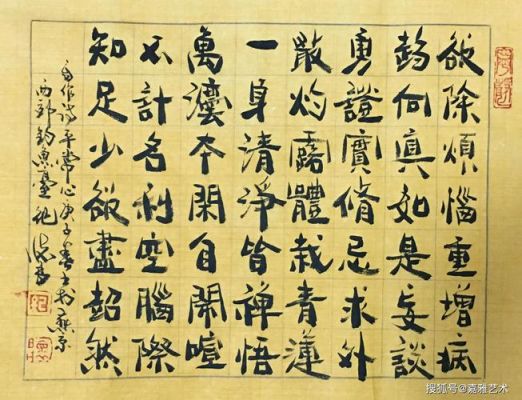 欲除煩惱重增病
趍何真如是妄談
勇證實脩忌求外
散灼露體栽青蓮
一身清淨皆禪悟
萬灋本閑自鬧喧
不計名利空腦際
知足少欲盡超然
自作詩平常心庚子春書於燕京
西郊釣魚臺
搜狐号@嘉雅艺术